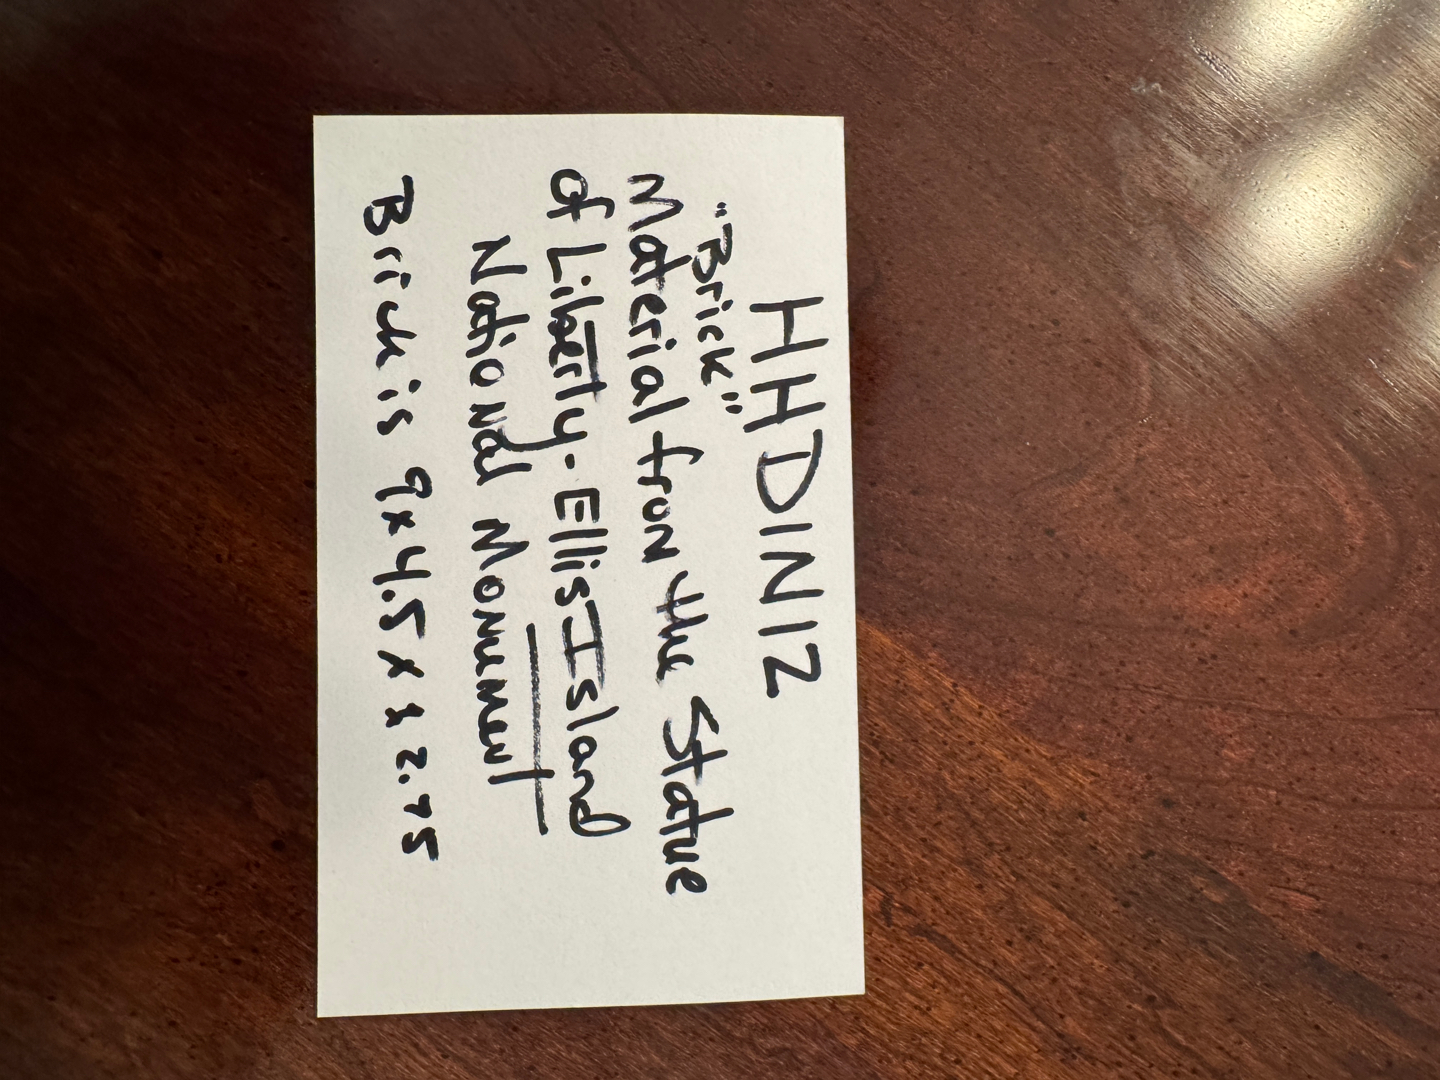 HHDINIZ
"Brick"
Material from the Statue
of Liberty-Ellis Island
National Monument
Brick is 9x4.5 x 2.75